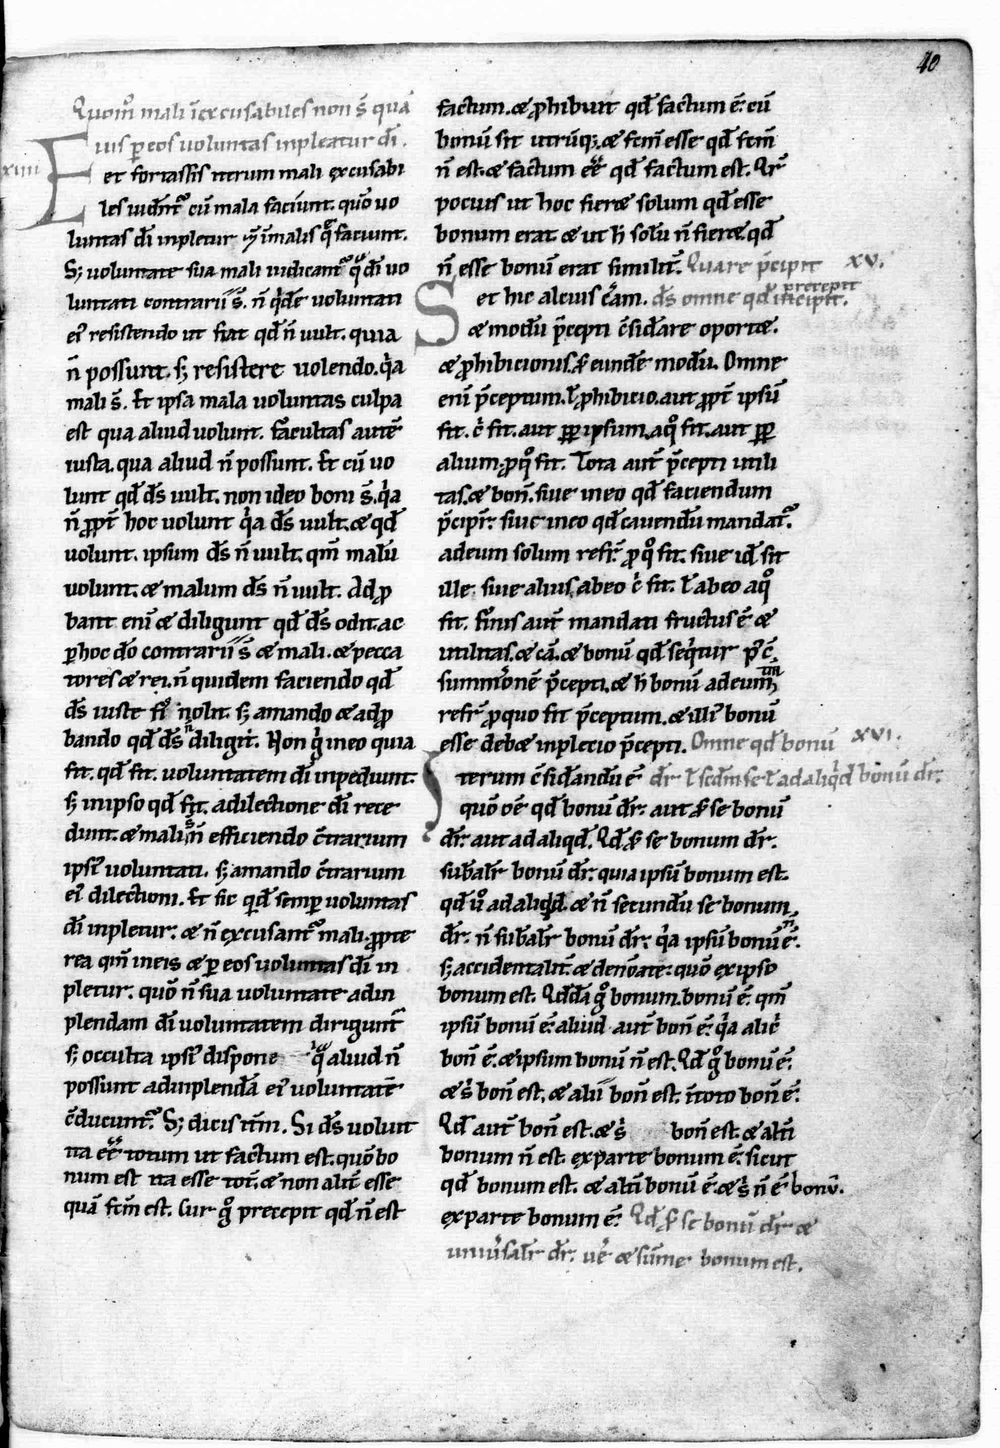 40
Quom̄ mali īexcusabiles non s̄ quā
xiiii
uis ꝑ eos voluntas inpleatur dī.
Et fortassis iterum mali excusabi
les uidēnt᷑ cū mala faciunt. quō uo
luntas dī inpletur ī malis q̄ faciunt.
S; uoluntate sua mali iudicant᷑ q̄ dī uo
luntati contrarii s̄. ñ q̄dē uoluntati
eī resistendo ut fiat qđ ñ uult. quia
ñ possunt. s; resistere uolendo. q̇a
mali s̄. Et ipsa mala uoluntas culpa
est qua aliud uolunt. facultas autē
iusta. qua aliud ñ possunt. Et cū uo
lunt qđ d̄s uult. non ideo boni s̄. q̇a
ñ ꝓpt̄ hoc uolunt q̇a d̄s uult. & qđ
uolunt. ipsum d̄s ñ uult. qm̄ malū
uolunt. & malum d̄s ñ uult. Ad ꝓ
bant enī & diligunt qđ d̄s odit. ac
ꝑ hoc dō contrarii s̄ & mali. & pecca
tores & rei. ñ quidem faciendo qđ
d̄s iuste fi᷑ nolit. s; amando & ad ꝓ
bando qđ d̄s ñ diligit. Non ġ in eo quia
fit. qđ fit. uoluntatem dī inpediunt.
s; in ipso qđ fit. a dilectione dī rece
dunt. & mali s̄ ñ efficiendo c̄trarium
ipsī uoluntati. s; amando c̄trarium
eī dilectioni. Et sic qđē semꝑ uoluntas
dī inpletur. & ñ excusant᷑ mali. ꝓpte
rea qm̄ in eis & ꝑ eos uoluntas dī in
pletur. quō ñ sua uoluntate ad in
plendam dī uoluntatem dirigunt᷑
s; occulta ipsī dispone q̄ aliud ñ
possunt ad inplendā eī uoluntatē
c̄ducunt᷑. S; dicis itm̄. Si d̄s uoluit
ita eē totum ut factum est. quō bo
num est ita esse tot̄. & non alit̄ esse
quā fcm̄ est. Cur ġ precepit qđ ñ est
factum. & ꝓhibuit qđ factum ē. cū
bonū sit utrūq;. & fcm̄ esse qđ fcm̄
ñ est. & factum eē qđ factum est. Qr̄
pocius ut hoc fier& solum qđ esse
bonum erat. & ut h̄ solū ñ fier&. qđ
ñ esse bonū erat similit̄. Quare p̄cipit xv.
Set hic alcius c̄am. d̄s omne qđ incipit. precepit
& modū p̄cepti c̄siđare oport&.
& ꝓhibicionis. s̄ eundē modū. Omne
enī p̄ceptum. ł ꝓhibicio. aut ꝓpt̄ ipsū
fit. c̄ fit. aut ꝓpt̄ ipsum. a q̊ fit. aut ꝓpt̄
alium. ꝓ q̊ fit. Tota aut̄ p̄cepti utili
tas. & bon̄. siue in eo qđ faciendum
p̄cipit᷑. siue in eo qđ cauendū mandat᷑.
ad eum solum refr̄t ꝓ q̊ fit. siue idē sit
ille. siue alius ab eo c̄ fit. ł ab eo a q̊
fit. Finis aut̄ mandati fructus ē &
utilitas. & cā. & bonū qđ seq̇tur p̄c̄
summōnē p̄cepti. & h̄ bonū ad eum tm̄
refr̄t ꝓ quo fit p̄ceptum. & illī bonū
esse deb& inpletio p̄cepti. Omne qđ bonū xvi.
Iterum c̄siđandū ē dr̄ ł scđm se ł ad aliq̇d bonū dr̄.
quō oē qđ bonū dr̄. aut s̄ se bonū
dr̄. aut ad aliqđ. Qđ s̄ se bonum dr̄.
subālr̄ bonū dr̄. quia ipsū bonum est.
qđ ů ad aliqđ. & ñ secundū se bonum
dr̄. ñ subālr̄ bonū dr̄. q̇a ipsū bonū ñ ē.
s; accidentalit̄. & denōate. quō ex ipso
bonum est. Qđdā ġ bonum. bonū ē. qm̄
ipsū bonū ē. aliud aut̄ bon̄ ē. q̇a alic̄
bon̄ ē. & ipsum bonū ñ est. Qđ ġ bonū ē.
& s̄ bon̄ est, & alii bon̄ est. ī toto bon̄ ē.
Qđ aut̄ bon̄ est. & s̄ bon̄ est. & altī
bonum ñ est. ex parte bonum ē. sicut
qđ bonum est. & altī bonū ē. & s̄ ñ ē bonū.
ex parte bonum ē. Qđ s̄ se bonū dr̄ &
uniu̇salr̄ dr̄. uē & sūme bonum est.